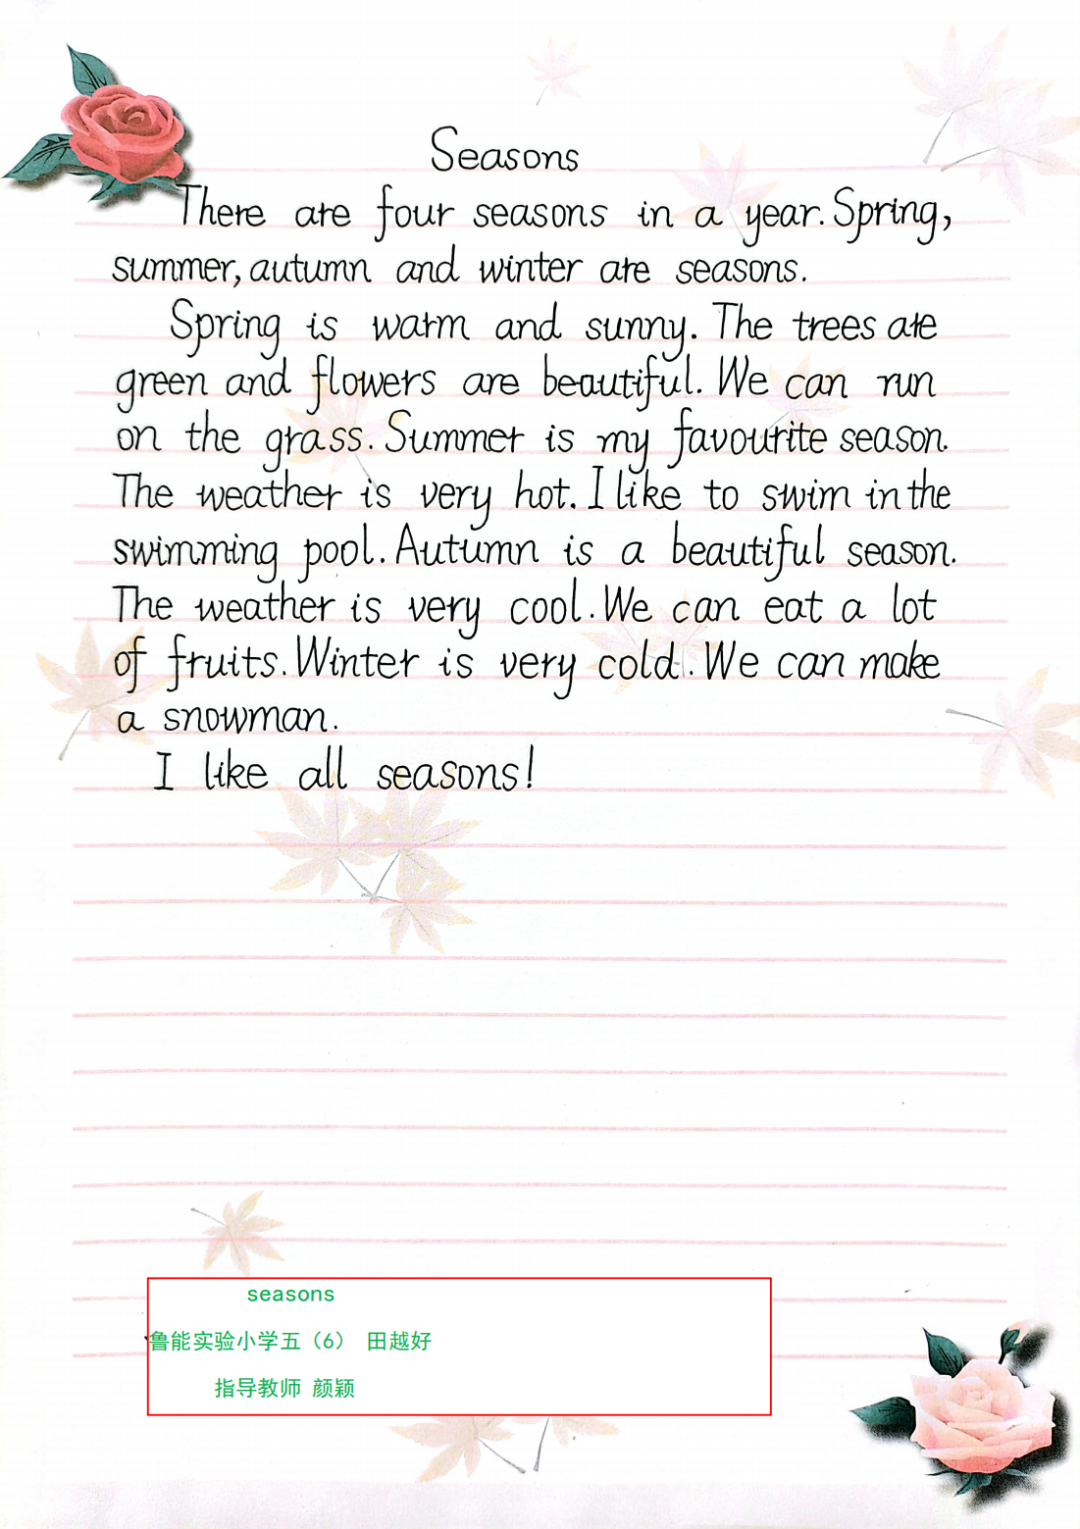 Seasons
There are four seasons in a year. Spring,
summer, autumn and winter are seasons.
Spring is warm and sunny. The trees are
green and flowers are beautiful. We can run
on the grass. Summer is my favourite season.
The weather is very hot. I like to swim in the
swimming pool. Autumn is a beautiful season.
The weather is very cool. We can eat a lot
of fruits. Winter is very cold. We can make
a snowman.
I like all seasons!
seasons
鲁能实验小学五（6） 田越好
指导教师 颜颖